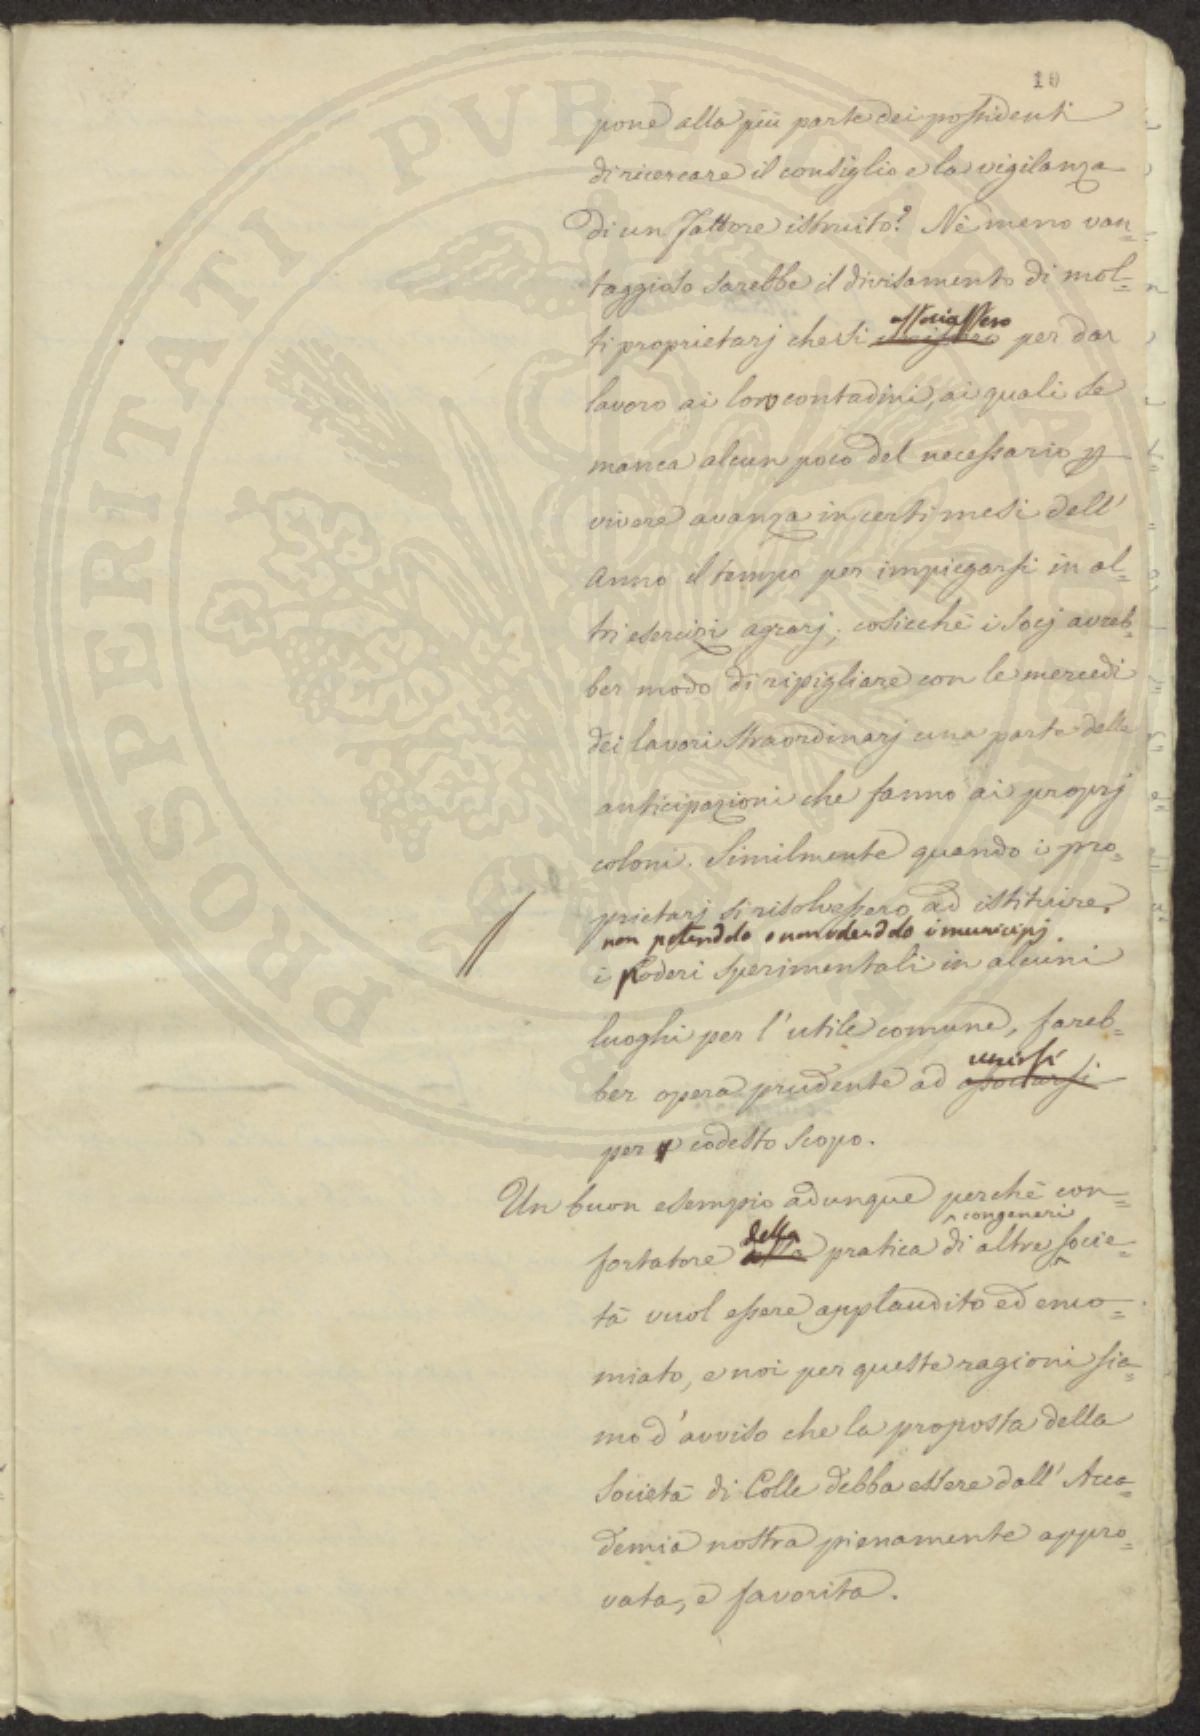 10
pone alla più parte dei possidenti
di ricercare il consiglio e la vigilanza
di un Fattore istruito? Nè meno van=
taggioso sarebbe il divisamento di mol=
associassero
ti proprietarj che si unissero per dar
lavoro ai loro contadini, ai quali se
manca alcun poco del necessario p
vivere avanza in certi mesi dell'
anno il tempo per impiegarsi in al=
tri esercizi agrarj; cosicchè i socj avreb=
ber modo di ripigliare con le mercedi
dei lavori straordinarj una parte delle
anticipazioni che fanno ai proprj
coloni. Similmente quando i pro=
prietarj si risolvessero ad istituire,
non potendolo o non volendolo i municipj
i Poderi sperimentali in alcuni
luoghi per l'utile comune, fareb=
unirsi
ber opera prudente ad associarsi
per codesto scopo.
Un buon esempio adunque perchè con=
della congeneri
fortatore alla pratica di altre socie=
tà vuol essere applaudito ed enco=
miato, e noi per queste ragioni sia=
mo d'avviso che la proposta della
Società di Colle debba essere dall' Acca=
demia nostra pienamente appro=
vata, e favorita.
PROSPERITATI PVBLICAE